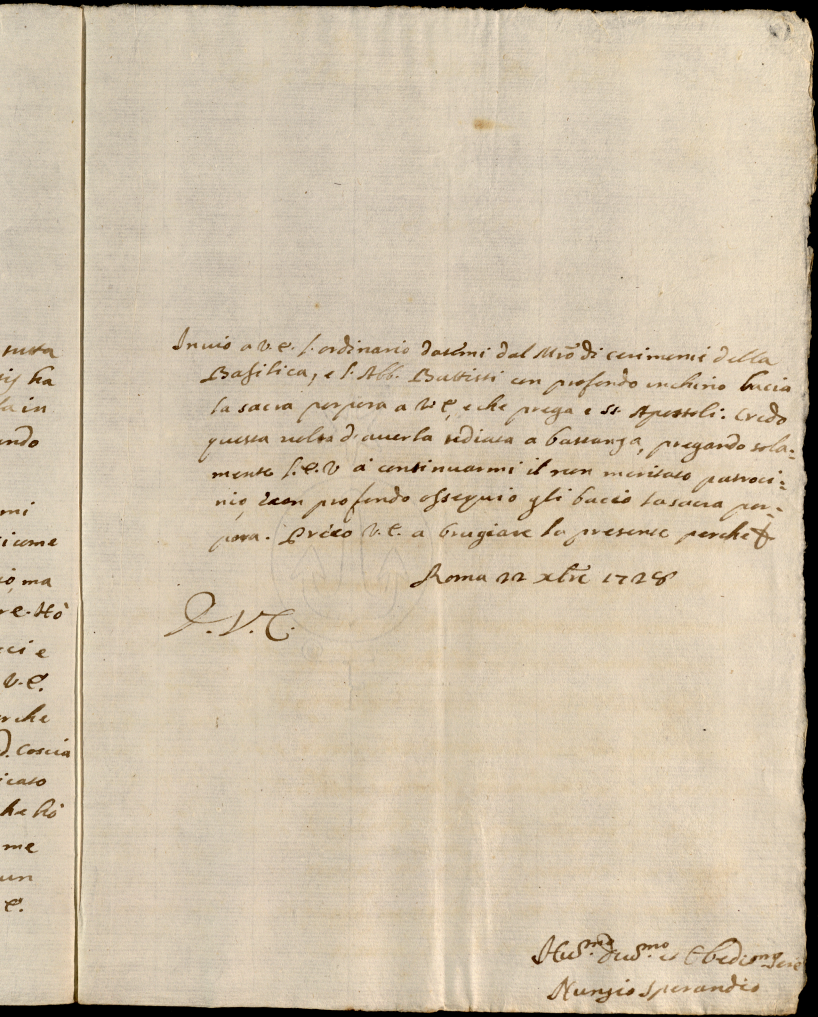 tutta
ha
la in
ando
mi
icome
ma
re. Hò
cci e
V. E.
rche
D. Coscia
icato
he hò
me
un
E.
Inuio a V.E. l'ordinario datomi dal Mrõ di cerimonii della
Basilica, e l'Abb. Battisti con profondo inchino bacia
la sacra porpora a V.E, e che prega e SS. Apostoli. Credo
questa uolta d'auerla tediata a bastanza, pregando sola=
mente l'E.V à continuarmi il non meritato patroci=
nio, e con profondo ossequio gli bacio la sacra por=
pora. Prieco V.E. a brugiare la presente perche
Roma 22 Xbre 1728
D.V.E.
Hu.mo Deu.mo et Obedi.mo Sere
Nunzio Sperandio